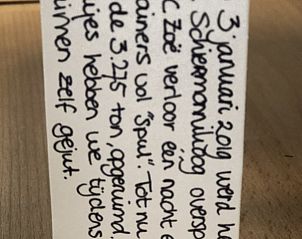 3 januari 2019 werd h
Schiermonnikoog oversp
C Zoë verloor één nacht e
ainers vol "spul". Tot nu
de 3.275 ton, opgeruimd.
ijes hebben we tijdens
uinen zelf gejut.